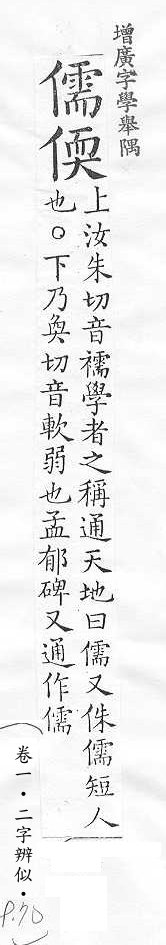 增廣字學舉隅
儒偄
上汝朱切音襦學者之稱通天地曰儒又侏儒短人
也○下乃奐切音軟弱也孟郁碑又通作儒
卷一·二字辨似·
P.70